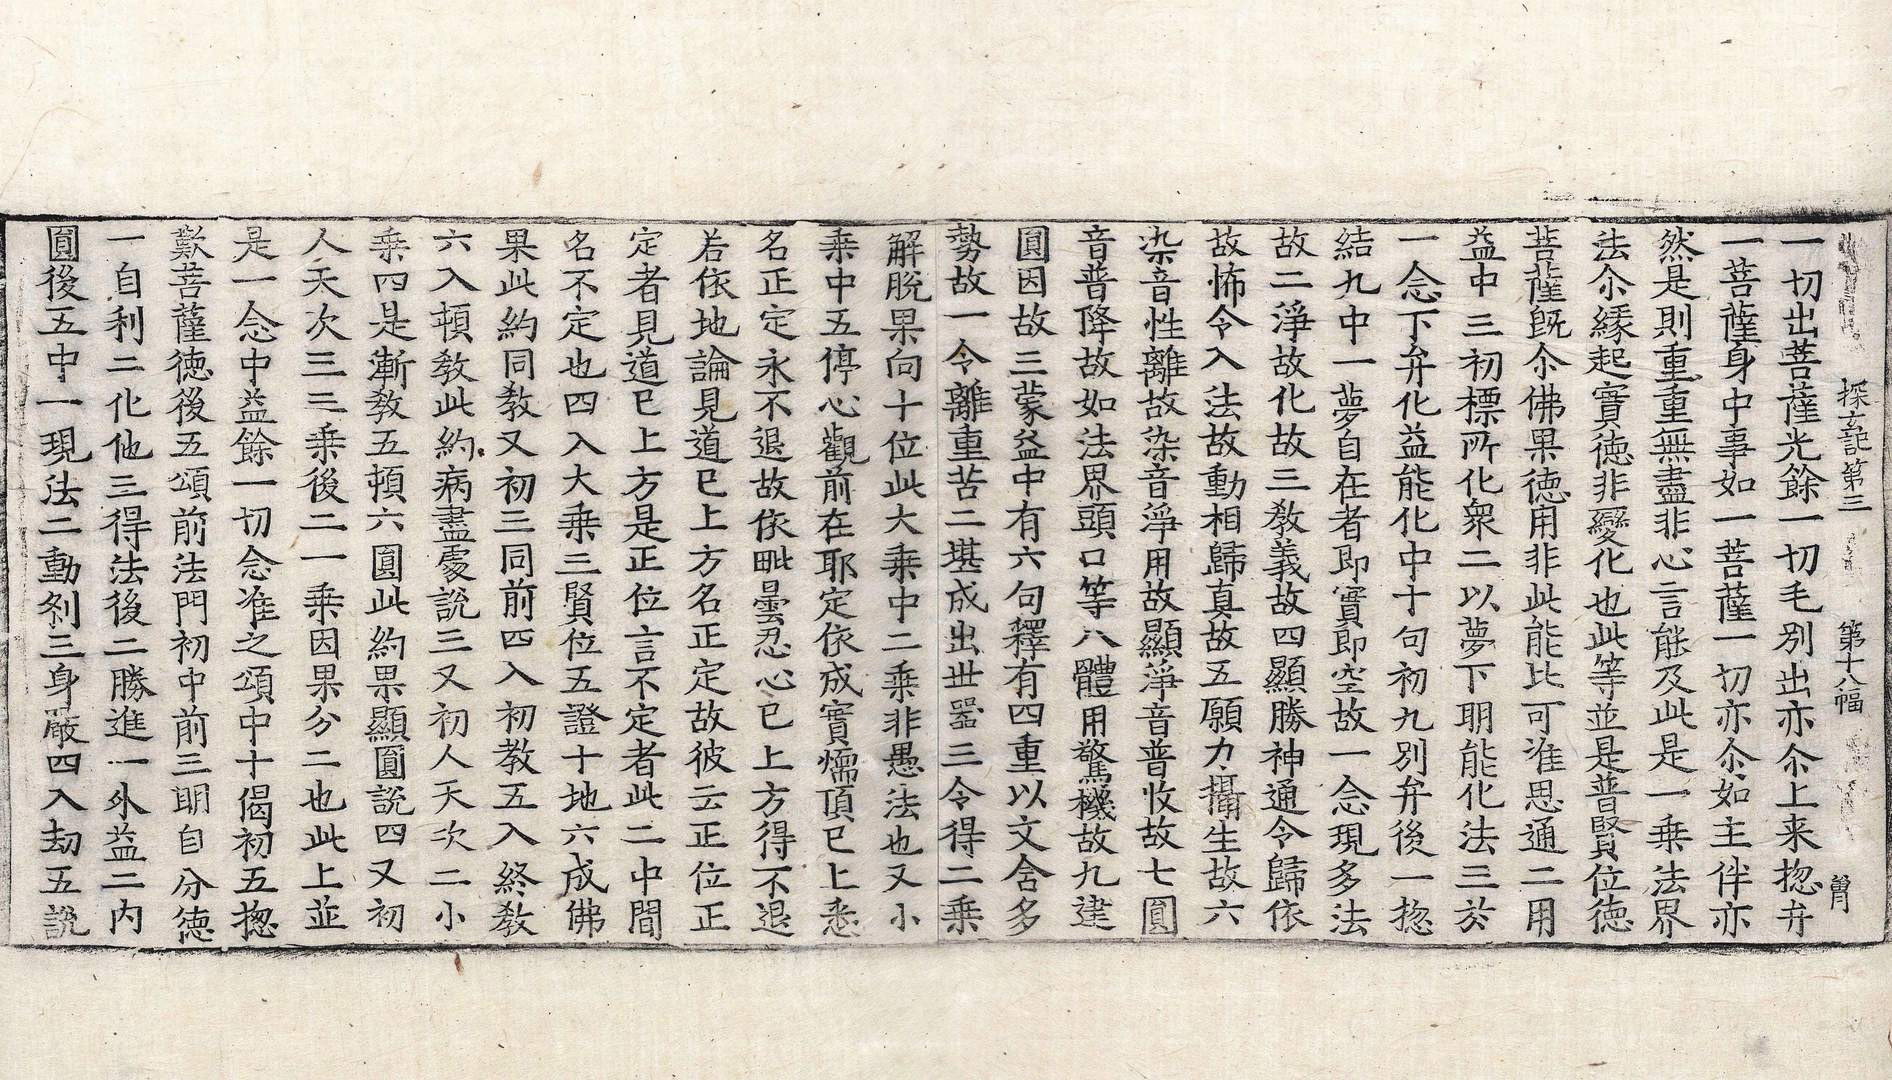 探玄記第三　第十八幅
一切出菩薩光餘一切毛別出亦尒上来揔弁
一菩薩身中事如一菩薩一切亦尒如主伴亦
然是則重重無盡非心言能及此是一乗法界
法尒緣起實徳非變化也此等並是普賢位徳
菩薩旣尒佛果徳用非此能比可准思通二用
益中三初標所化衆二以夢下明能化法三於
一念下弁化益能化中十句初九別弁後一揔
結九中一夢自在者即實即空故一念現多法
故二淨故化故三教義故四顯勝神通令歸依
故怖令入法故動相歸真故五願力攝生故六
染音性離故染音淨用故顯淨音普收故七圓
音普降故如法界頭口等八體用驚機故九建
圓因故三蒙益中有六句釋有四重以文含多
勢故一令離重苦二堪成出世器三令得二乗
解脫果向十位此大乗中二乗非愚法也又小
乗中五停心觀前在耶定依成實燸頂已上悉
名正定永不退故依毗曇忍心已上方得不退
若依地論見道已上方名正定故彼云正位正
定者見道已上方是正位言不定者此二中間
名不定也四入大乗三賢位五證十地六成佛
果此約同教又初三同前四入初教五入終教
六入頓教此約病盡處說三又初人天次二小
乗四是漸教五頓六圓此約果顯圓說四又初
人天次三三乗後二一乗因果分二也此上並
是一念中益餘一切念准之頌中十偈初五揔
歎菩薩徳後五頌前法門初中前三明自分徳
一自利二化他三得法後二勝進一外益二内
圓後五中一現法二動刹三身嚴四入劫五說